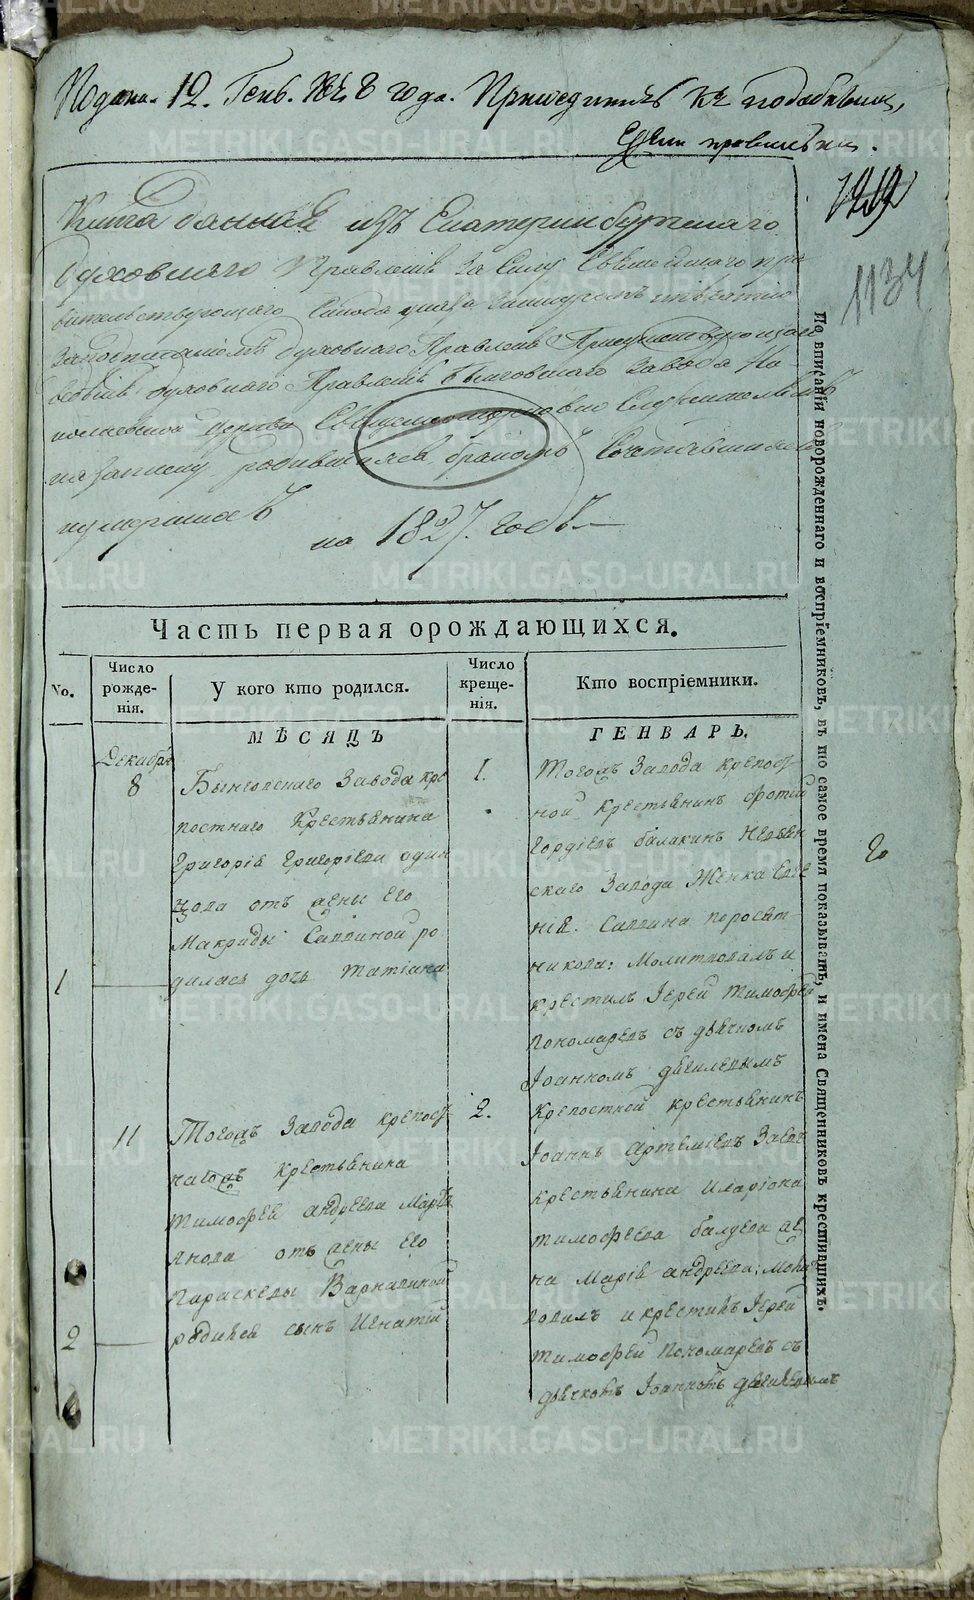 Подана 12. Генв. 1828 года. Присоединить къ подобнымъ,
1134
Книга данная изъ Екатеринбургскаго
Духовнаго Правленія за силу Святейшаго пра
вительствующаго Синода указа
духовнаго Правленія Присутствующаго
духовнаго Правленія Бынговскаго Завода Ни
колаевской церкви Священноцерковно Служителямъ
на записку родившихся бракомъ Сочетавшихся
и умершихъ
на 1827. годъ
Часть первая орождающихся.
No.
Число рожде-
нія.
У кого кто родился.
Число креще-
нія.
Кто воспріемники.
МѢСЯЦЪ
ГЕНВАРЬ.
Декабря
8
Бынговскаго Завода кре
постнаго Крестьянина
Григорія Григоріева один
цова отъ жены Его
Макриды Саввиной ро
дилась дочь Татіана
1
1.
Тогожъ Завода крепост
ной крестьянинъ Фотій
Гордіевъ балакинъ Невьян
скаго Завода Женка Евге
нія Саввина поросят
никова: Молитвовалъ и
крестилъ Іерей Тимофей
Пономаревъ съ дьячкомъ
Іоанномъ
11
Тогожъ Завода крепост
нагожъ Крестьянина
Тимофея андреева Марть
янова отъ жены Его
Параскевы Варнавиной
родился сынъ Игнатій
2
2.
Крепостной крестьянинъ
Іоаннъ Артемьевъ
крестьянина Иларіона
Тимофеева балуева же
на Марія андреева; Молит
вовалъ и крестилъ Іерей
Тимофей Пономаревъ съ
дьячкомъ Іоанномъ
По вписаніи новорожденнаго и воспріемниковъ, въ то самое время показывать, и имена Священниковъ крестившихъ.
METRIKI.GASO-URAL.RU